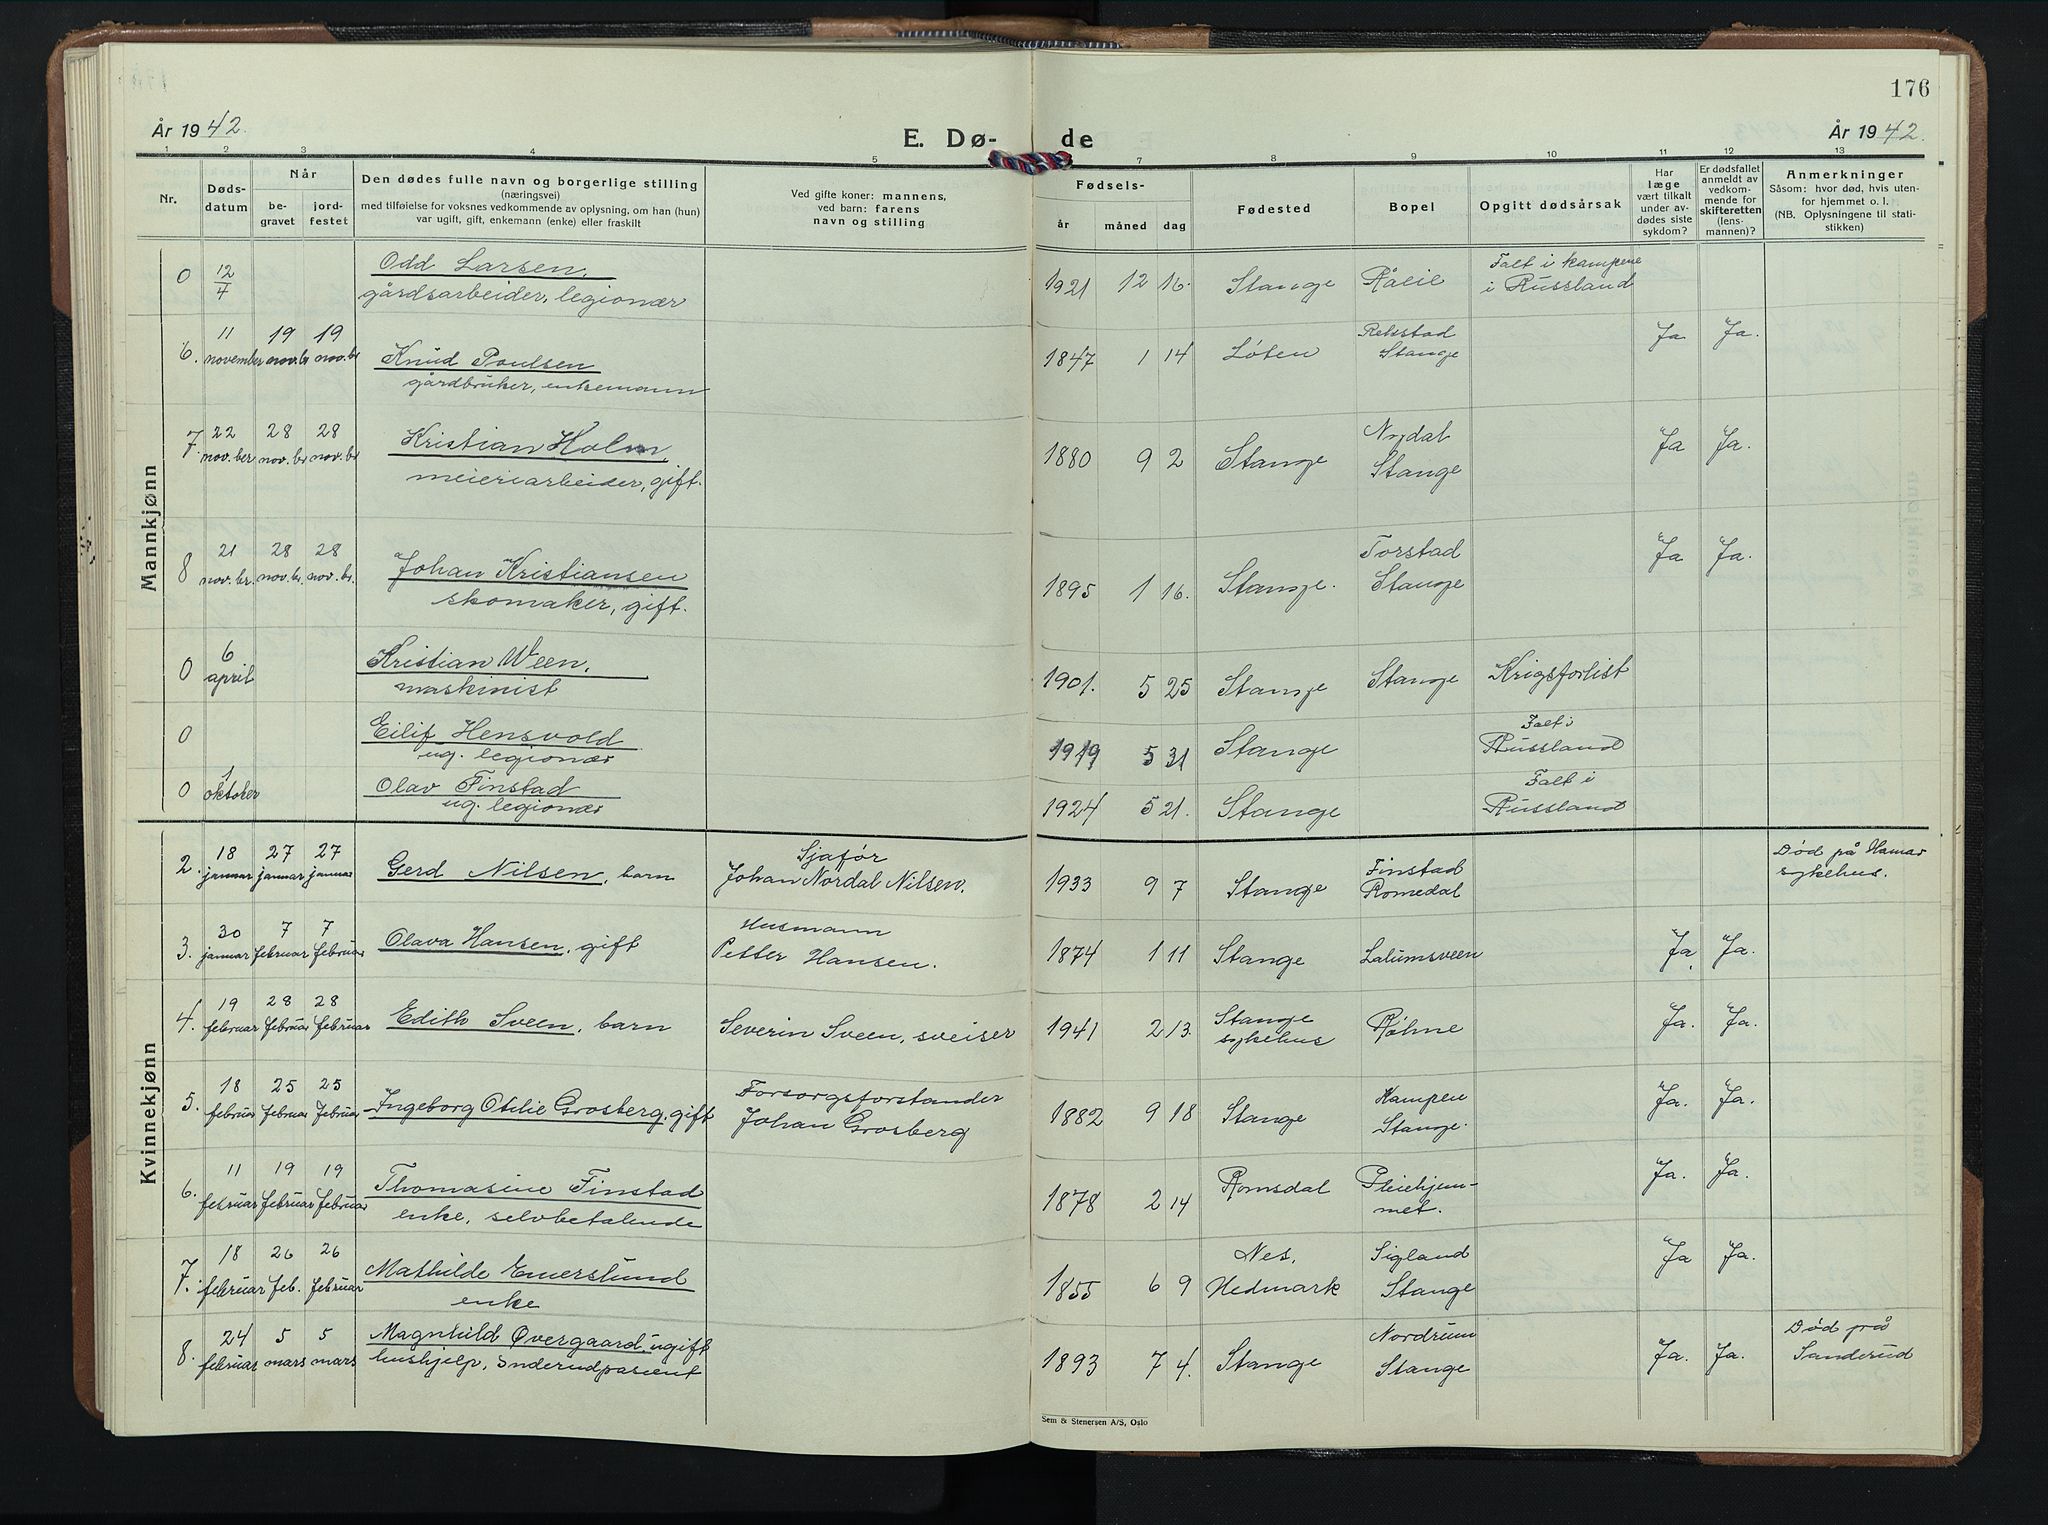 176
År 1942.
E. Dø-
de
År 1942.
1 2 3 4 5 7 8 9 10 11 12 13
Nr.
Døds-
datum
Når
be-
gravet
jord-
festet
Den dødes fulle navn og borgerlige stilling
(næringsvei)
med tilføielse for voksnes vedkommende av oplysning, om han (hun)
var ugift, gift, enkemann (enke) eller fraskilt
Ved gifte koner: mannens,
ved barn: farens
navn og stilling
Fødsels-
år måned dag
Fødested
Bopel
Opgitt dødsårsak
Har
læge
vært tilkalt
under av-
dødes siste
sykdom?
Er dødsfallet
anmeldt av
vedkom-
mende for
skifteretten
(lens-
mannen)?
Anmerkninger
Såsom: hvor død, hvis uten-
for hjemmet o. l.
(NB. Oplysningene til stati-
stikken)
Mannkjønn
0 12/4 Odd Larsen, 1921 12 16. Stange Råeie Falt i kampene
gårdsarbeider, legionær i Russland
6. 11 19 19 Knud Poulsen 1847 1 14 Løten Rekstad Ja Ja.
november nov.br nov.br gårdbruker, enkemann Stange
7. 22 28 28 Kristian Holm, 1880 9 2 Stange Nydal Ja Ja.
nov.ber nov.br nov.br meieriarbeider, gift. Stange
8 21 28 28 Johan Kristiansen 1895 1 16. Stange. Torstad Ja Ja.
nov.br. nov.br. nov.br. skomaker, gift. Stange
0 6 Kristian Ween, 1901. 5 25 Stange Stange Krigsforlist
april maskinist
0 Eilif Hensvold 1919 5 31 Stange Falt i
ug. legionær Russland
0 1 Olav Finstad 1924 5 21. Stange Falt i
oktober ug. legionær Russland
Kvinnekjønn
2. 18 27 27 Gerd Nilsen, barn Sjafør 1933 9 7 Stange Finstad Død på Hamar
januar januar januar Johan Nordal Nilsen. Romedal sykehus.
3. 30 7 7 Olava Hansen, gift Husmann 1874 1 11 Stange Lalumsveen Ja Ja.
januar februar februar Petter Hansen.
4. 19 28 28 Edith Sveen, barn Severin Sveen, sveiser 1941 2 13. Stange Røhne Ja. Ja.
februar februar februar sykehus
5. 18 25 25 Ingeborg Otilie Grosberg, gift Forsorgsforstander 1882 9 18 Stange Kampen Ja. Ja.
februar februar februar Johan Grosberg Stange.
6. 11 19 19 Thomasine Finstad 1878 2 14 Romsdal Pleiehjem- Ja. Ja.
februar februar februar enke, selvbetalende met.
7. 18 26 26 Mathilde Emerslund 1855 6 9 Nes, Sigland Ja Ja.
februar feb. februar enke Hedmark Stange
8. 24 5 5 Magnhild Øvergaard, ugift 1893 7 4. Stange Nordrum Ja. Ja. Død på
februar mars mars hushjelp, Stange Sanderud
Sem & Stenersen A/S, Oslo